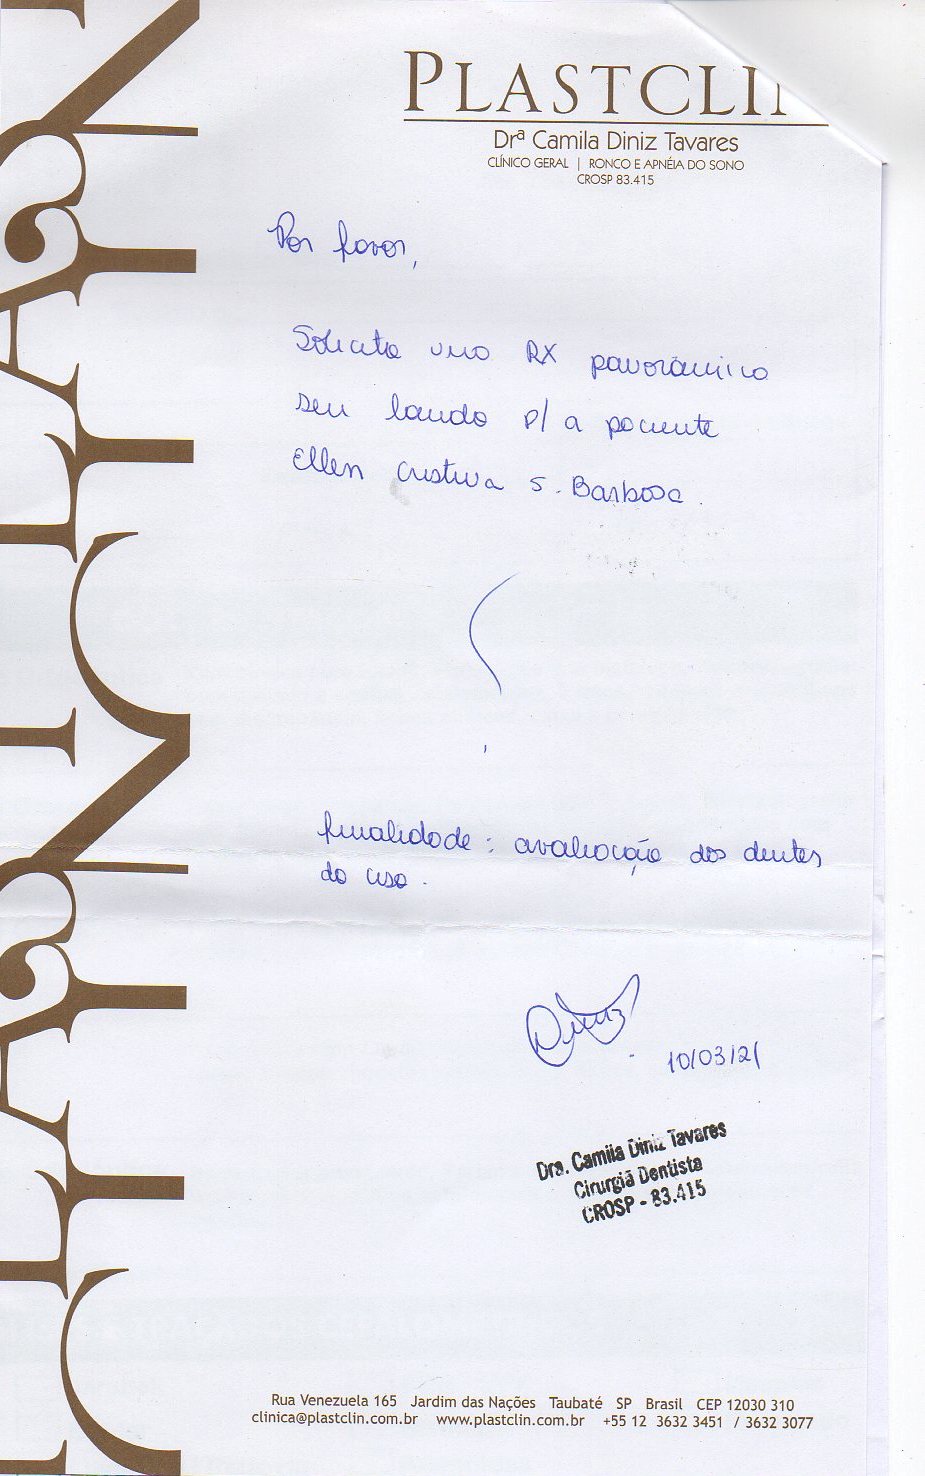 PLASTCLIN
Drª Camila Diniz Tavares
CLÍNICO GERAL | RONCO E APNÉIA DO SONO
CROSP 83.415
Por favor,
Solicito uma RX panorâmica
sem laudo p/ a paciente
Ellen Cristina S. Barbosa.
finalidade: avaliação dos dentes
do siso.
Diniz
10/03/21
Dra. Camila Diniz Tavares
Cirurgiã Dentista
CROSP - 83.415
Rua Venezuela 165 Jardim das Nações Taubaté SP Brasil CEP 12030 310
clinica@plastclin.com.br www.plastclin.com.br +55 12 3632 3451 / 3632 3077